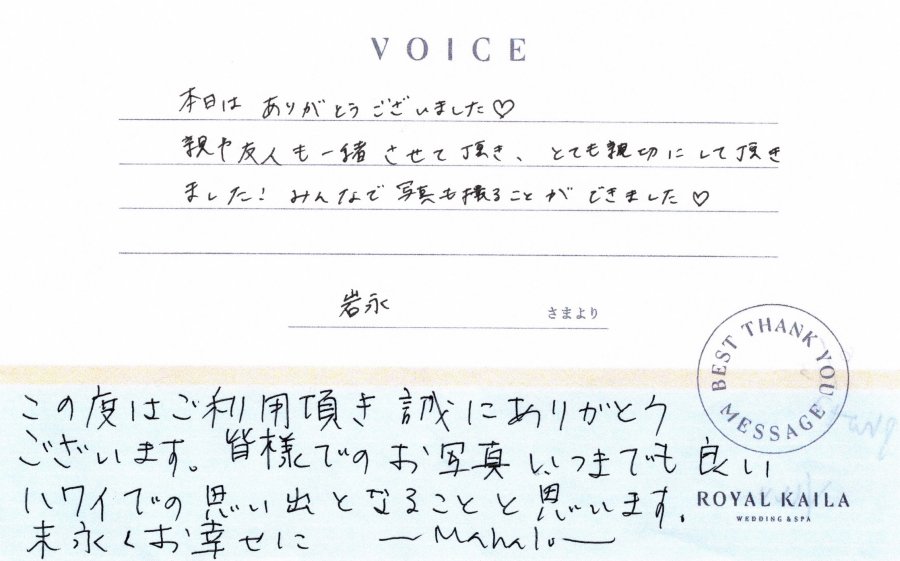 VOICE
本日は ありがとうございました♡
親や友人も一緒させて頂き、とても親切にして頂き
ました! みんなで写真も撮ることができました♡
岩永 さまより
BEST THANK YOU MESSAGE
この度はご利用頂き誠にありがとう
ございます。皆様でのお写真いつまでも良い
ハワイでの思い出となることと思います。
末永くお幸せに ーMahaloー
ROYAL KAILA
WEDDING & SPA